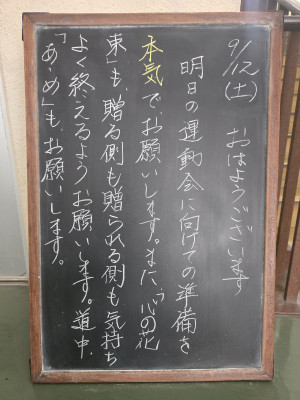 9/12(土) おはようございます
明日の運動会に向けての準備を
本気でお願いします。また、「心の花
束」も、贈る側も贈られる側も気持ち
よく終えるようお願いします。道中、
「あ・め」も、お願いします。